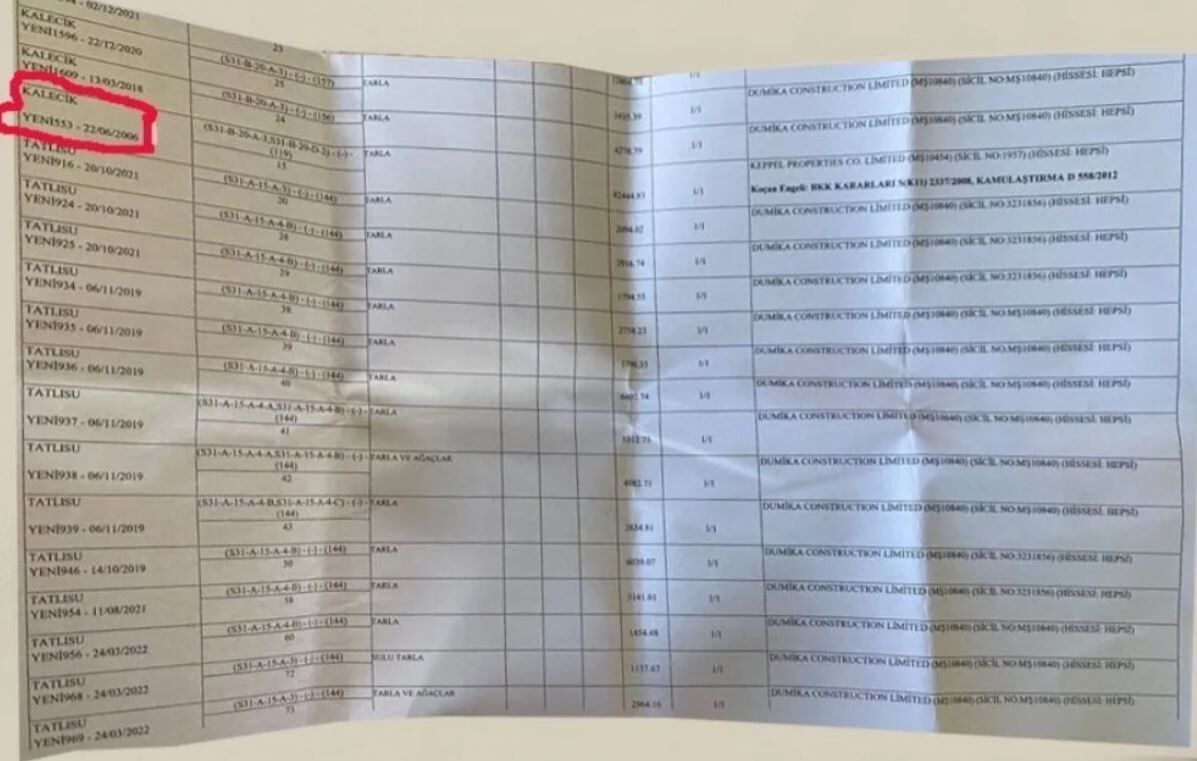 - 02/12/2021
KALECİK
YENİ1596 - 22/12/2020
23
(S31-B-20-A-3) - (-) - (157)
TARLA
1/1
DUMİKA CONSTRUCTION LIMITED (MŞ10840) (SİCİL NO:MŞ10840) (HİSSESİ: HEPSİ)
KALECİK
YENİ1609 - 13/03/2018
25
(S31-B-20-A-3) - (-) - (156)
TARLA
1/1
DUMİKA CONSTRUCTION LİMİTED (MŞ10840) (SİCİL NO:MŞ10840) (HİSSESİ: HEPSİ)
KALECİK
YENİ553 - 22/06/2006
24
(S31-B-20-A-3,S31-B-20-D-2) - (-) -
(119)
15
TARLA
1/1
KEPPEL PROPERTIES CO. LIMITED (MŞ10454) (SİCİL NO:1957) (HİSSESİ: HEPSİ)
Koçan Engeli: BKK KARARLARI S(K11) 2337/2008, KAMULAŞTIRMA D 558/2012
TATLISU
YENİ916 - 20/10/2021
(S31-A-15-A-3) - (-) - (144)
20
TARLA
1/1
DUMİKA CONSTRUCTION LİMİTED (MŞ10840) (SİCİL NO:3231856) (HİSSESİ: HEPSİ)
TATLISU
YENİ924 - 20/10/2021
(S31-A-15-A-4-B) - (-) - (144)
28
TARLA
1/1
DUMİKA CONSTRUCTION LİMİTED (MŞ10840) (SİCİL NO:3231856) (HİSSESİ: HEPSİ)
TATLISU
YENİ925 - 20/10/2021
(S31-A-15-A-4-B) - (-) - (144)
29
TARLA
1/1
DUMİKA CONSTRUCTION LİMİTED (MŞ10840) (SİCİL NO:3231856) (HİSSESİ: HEPSİ)
TATLISU
YENİ934 - 06/11/2019
(S31-A-15-A-4-B) - (-) - (144)
38
TARLA
2758.23
1/1
DUMİKA CONSTRUCTION LİMİTED (MŞ10840) (SİCİL NO:MŞ10840) (HİSSESİ: HEPSİ)
TATLISU
YENİ935 - 06/11/2019
(S31-A-15-A-4-B) - (-) - (144)
39
TARLA
1/1
DUMİKA CONSTRUCTION LİMİTED (MŞ10840) (SİCİL NO:MŞ10840) (HİSSESİ: HEPSİ)
TATLISU
YENİ936 - 06/11/2019
(S31-A-15-A-4-B) - (-) - (144)
40
TARLA
1/1
DUMİKA CONSTRUCTION LİMİTED (MŞ10840) (SİCİL NO:MŞ10840) (HİSSESİ: HEPSİ)
TATLISU
YENİ937 - 06/11/2019
(S31-A-15-A-4-A,S31-A-15-A-4-B) - (-) -
(144)
41
TARLA
1/1
DUMİKA CONSTRUCTION LİMİTED (MŞ10840) (SİCİL NO:MŞ10840) (HİSSESİ: HEPSİ)
TATLISU
YENİ938 - 06/11/2019
(S31-A-15-A-4-A,S31-A-15-A-4-B) - (-) -
(144)
42
TARLA VE AĞAÇLAR
1/1
DUMİKA CONSTRUCTION LİMİTED (MŞ10840) (SİCİL NO:MŞ10840) (HİSSESİ: HEPSİ)
TATLISU
YENİ939 - 06/11/2019
(S31-A-15-A-4-B,S31-A-15-A-4-C) - (-) -
(144)
43
TARLA
1/1
DUMİKA CONSTRUCTION LİMİTED (MŞ10840) (SİCİL NO:MŞ10840) (HİSSESİ: HEPSİ)
TATLISU
YENİ946 - 14/10/2019
(S31-A-15-A-4-B) - (-) - (144)
50
TARLA
6039.07
1/1
DUMİKA CONSTRUCTION LİMİTED (MŞ10840) (SİCİL NO:3231856) (HİSSESİ: HEPSİ)
TATLISU
YENİ954 - 11/08/2021
(S31-A-15-A-4-B) - (-) - (144)
58
TARLA
3141.61
1/1
DUMİKA CONSTRUCTION LİMİTED (MŞ10840) (SİCİL NO:3231856) (HİSSESİ: HEPSİ)
TATLISU
YENİ956 - 24/03/2022
(S31-A-15-A-4-B) - (-) - (144)
60
TARLA
1454.48
1/1
DUMİKA CONSTRUCTION LİMİTED (MŞ10840) (SİCİL NO:MŞ10840) (HİSSESİ: HEPSİ)
TATLISU
YENİ968 - 24/03/2022
(S31-A-15-A-3) - (-) - (144)
72
SULU TARLA
1137.67
1/1
DUMİKA CONSTRUCTION LİMİTED (MŞ10840) (SİCİL NO:MŞ10840) (HİSSESİ: HEPSİ)
TATLISU
YENİ969 - 24/03/2022
(S31-A-15-A-3) - (-) - (144)
73
TARLA VE AĞAÇLAR
2964.16
1/1
DUMİKA CONSTRUCTION LİMİTED (MŞ10840) (SİCİL NO:MŞ10840) (HİSSESİ: HEPSİ)